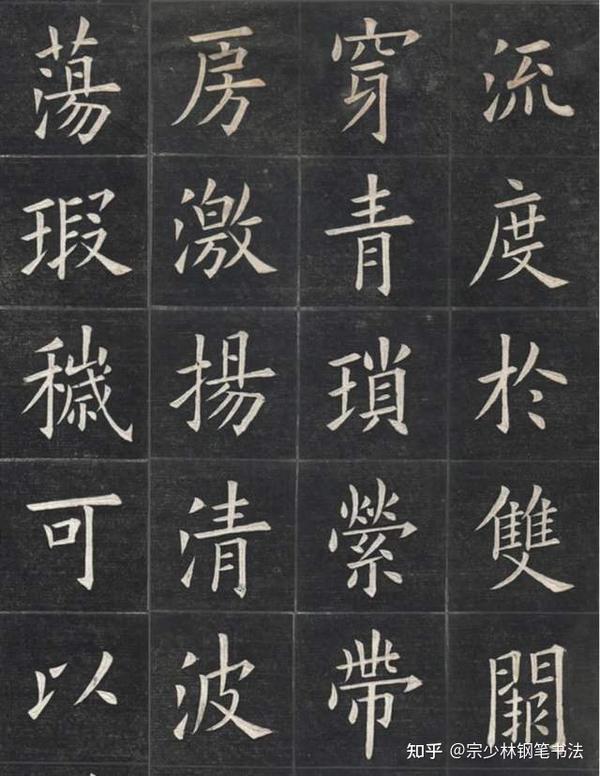 流度於雙闕
穿青瑣縈帶
房激揚清波
蕩瑕穢可以
知乎 @宗少林钢笔书法